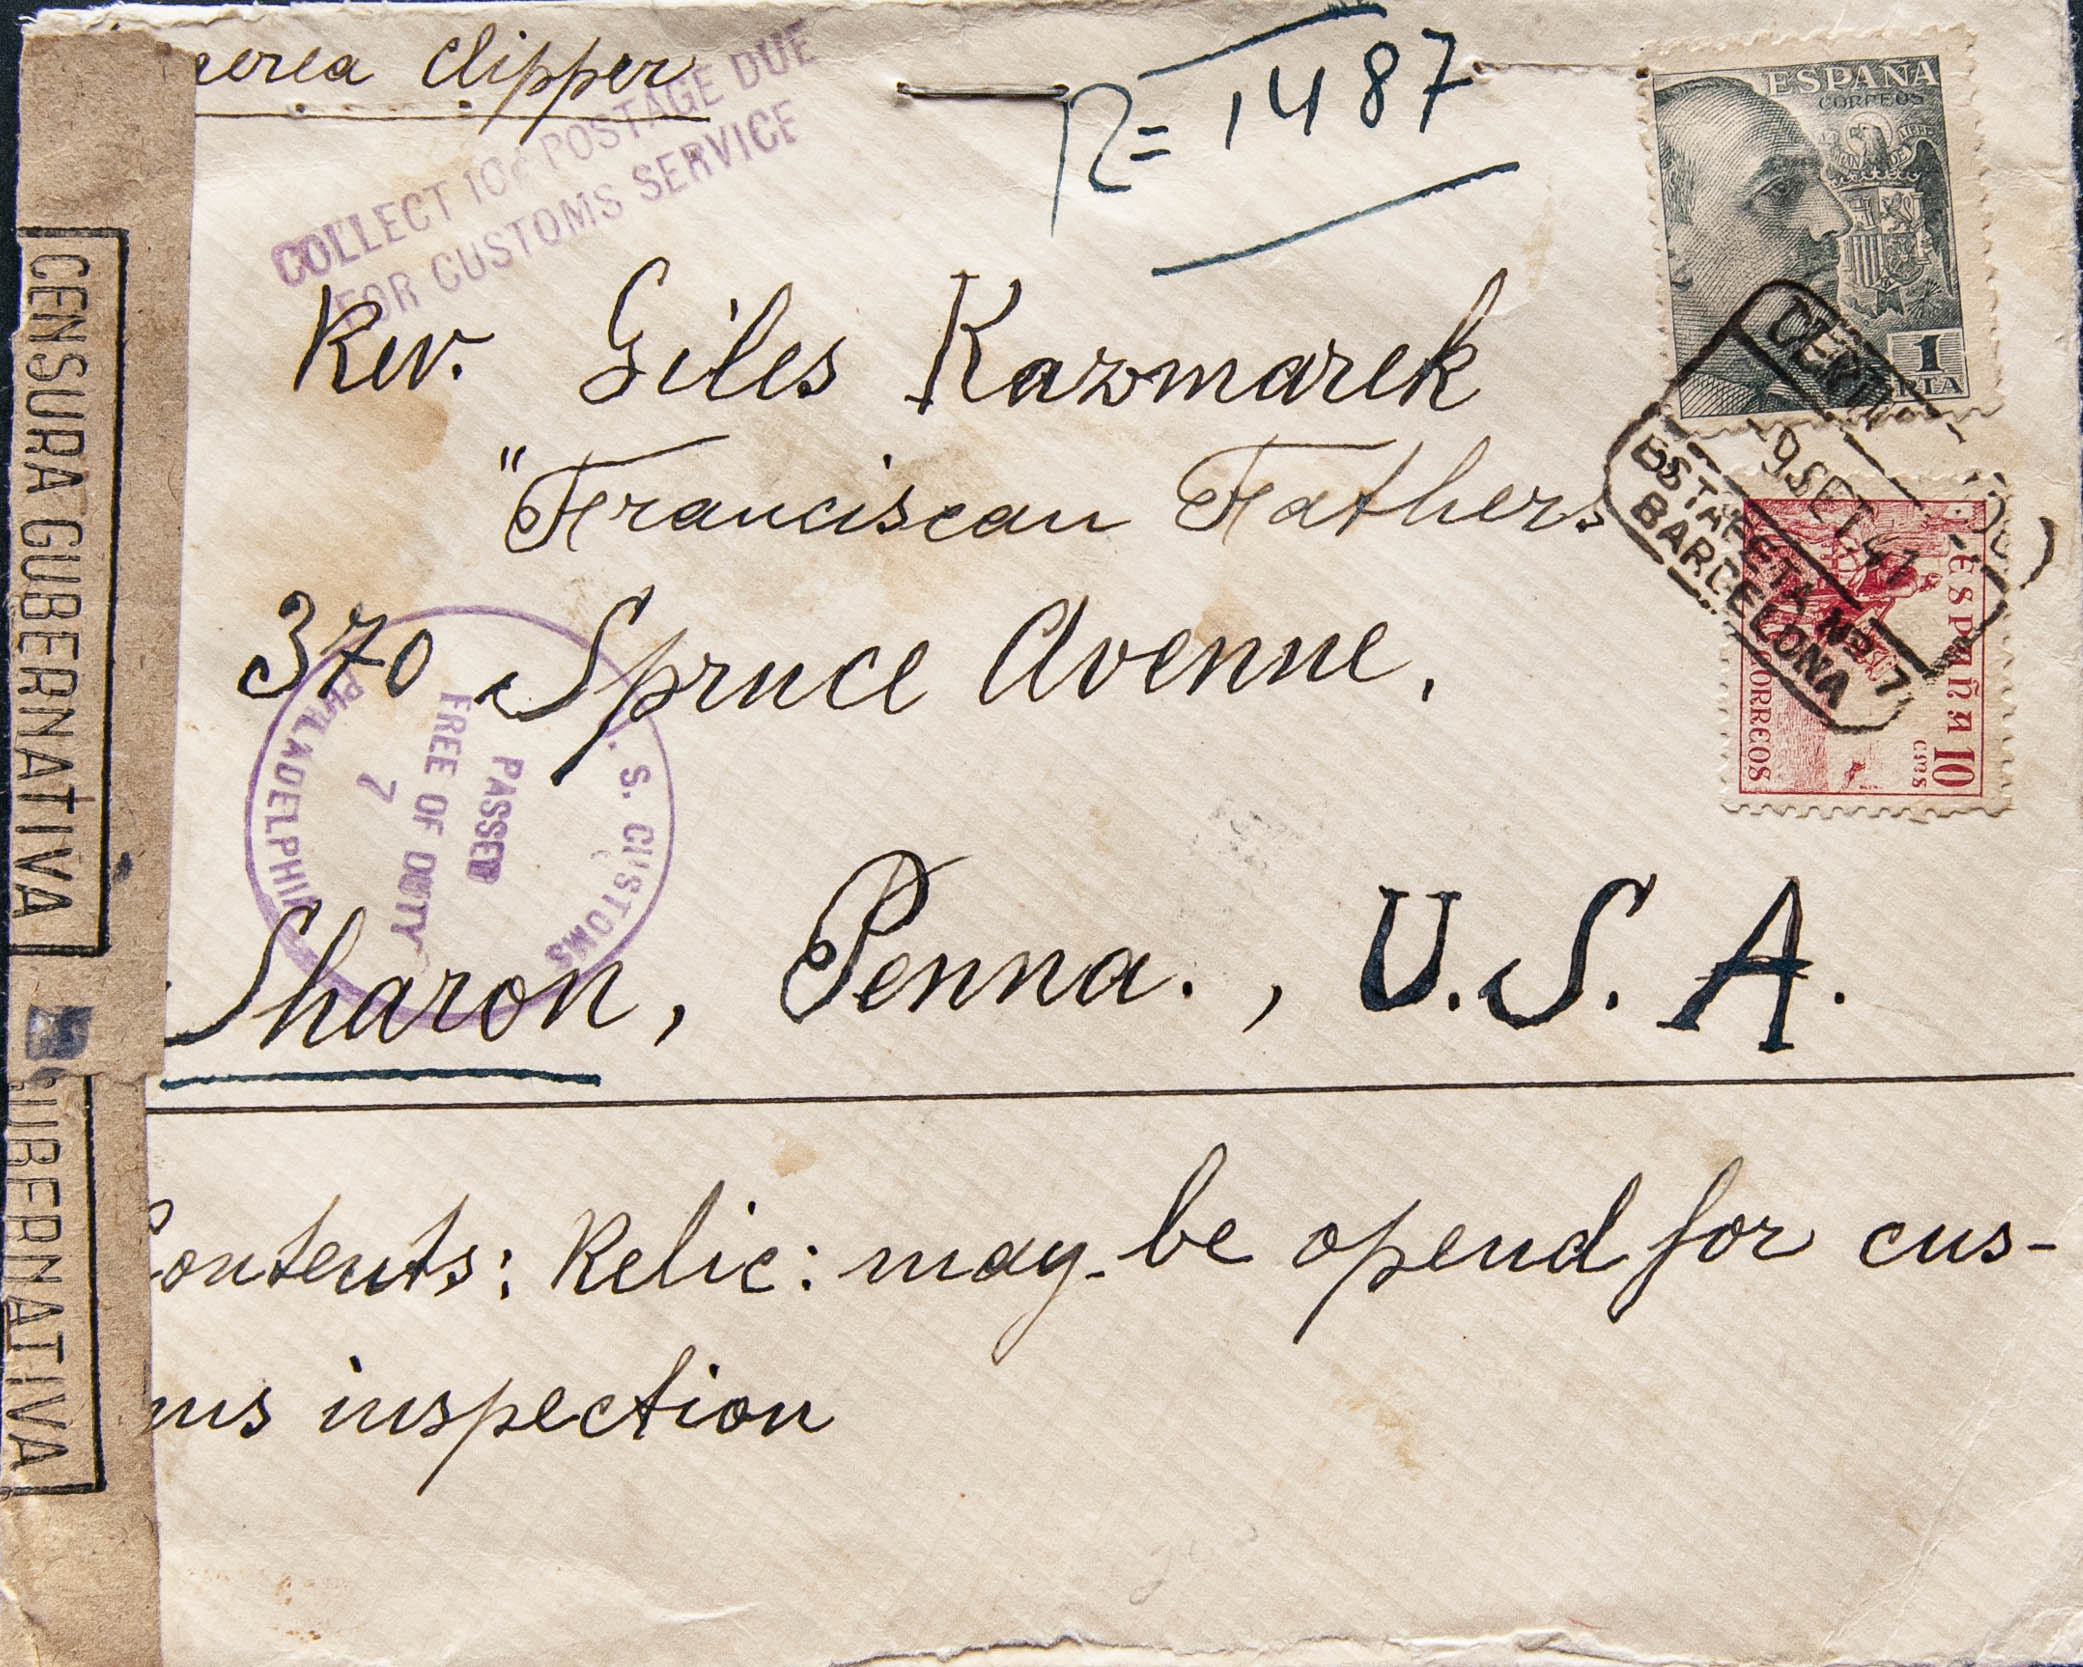 aerea Clipper
COLLECT 10¢ POSTAGE DUE
FOR CUSTOMS SERVICE
R= 1487
ESPAÑA
CORREOS
1
PTA
Rev. Giles Kazmarek
"Franciscan Fathers
370 Spruce Avenue,
Sharon, Penna., U.S.A.
CERTI
9 SET 41
ESTAFETA Nº 7
BARCELONA
ESPAÑA 10
CTMS
CORREOS
S. CUSTOMS
PASSED
FREE OF DUTY
7
PHILADELPHIA
CENSURA GUBERNATIVA
GUBERNATIVA
Contents: Relic: may be opend for cus-
ms inspection